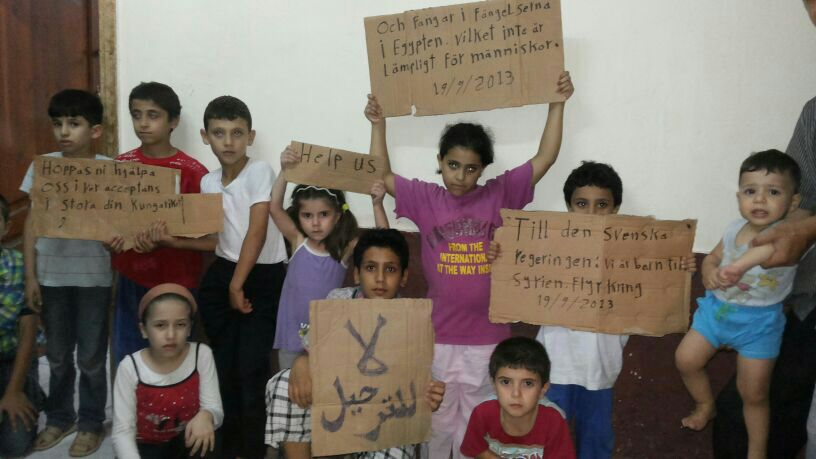 Och Fångar i Fängelserna
i Egypten. Vilket inte är
Lämpligt för människor.
19/9/2013
Hoppas ni hjälpa
oss i vår acceptans
i stora din Kungariket
Help us
FROM THE
INTERNATION
AT THE WAY INS
Till den Svenska
regeringen: Vi är barn till
Syrien. Flyr Kring
19/9/2013
لا
للترحيل